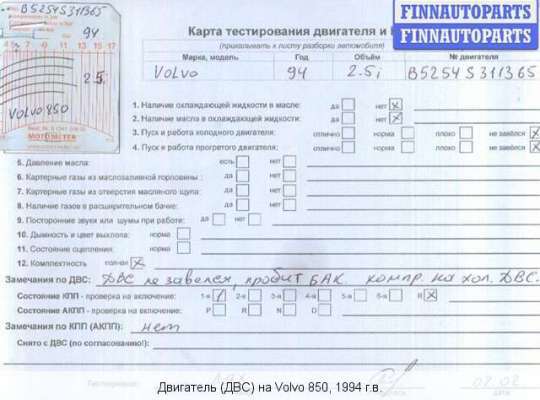 B5254S311365
94
FINNAUTOPARTS
FINNAUTOPARTS
Карта тестирования двигателя и
(прикалывать к листу разборки автомобиля)
Марка, модель Год Объём № двигателя
VOLVO 94 2.5i B5254S311365
2.5
VOLVO 850
MOTOMETER
1. Наличие охлаждающей жидкости в масле: да нет x
2. Наличие масла в охлаждающей жидкости: да нет x
3. Пуск и работа холодного двигателя: отлично норма плохо не завёлся x
4. Пуск и работа прогретого двигателя: отлично норма плохо не завёлся x
5. Давление масла: есть нет
6. Картерные газы из маслозаливной горловины: да нет
7. Картерные газы из отверстия масляного щупа: да нет
8. Наличие газов в расширительном бачке: да нет
9. Посторонние звуки или шумы при работе: да нет
10. Дымность и цвет выхлопа: норма
11. Состояние сцепления: норма
12. Комплектность полная x
Замечания по ДВС: ДВС не завелся, пробит БАК. компр. на хол. ДВС.
Состояние КПП - проверка на включение: 1-я 2-я 3-я 4-я 5-я 6-я R x
Состояние АКПП - проверка на включение: P R N D
Замечания по КПП (АКПП): нет
Снято с ДВС (по согласованию!):
Двигатель (ДВС) на Volvo 850, 1994 г.в.